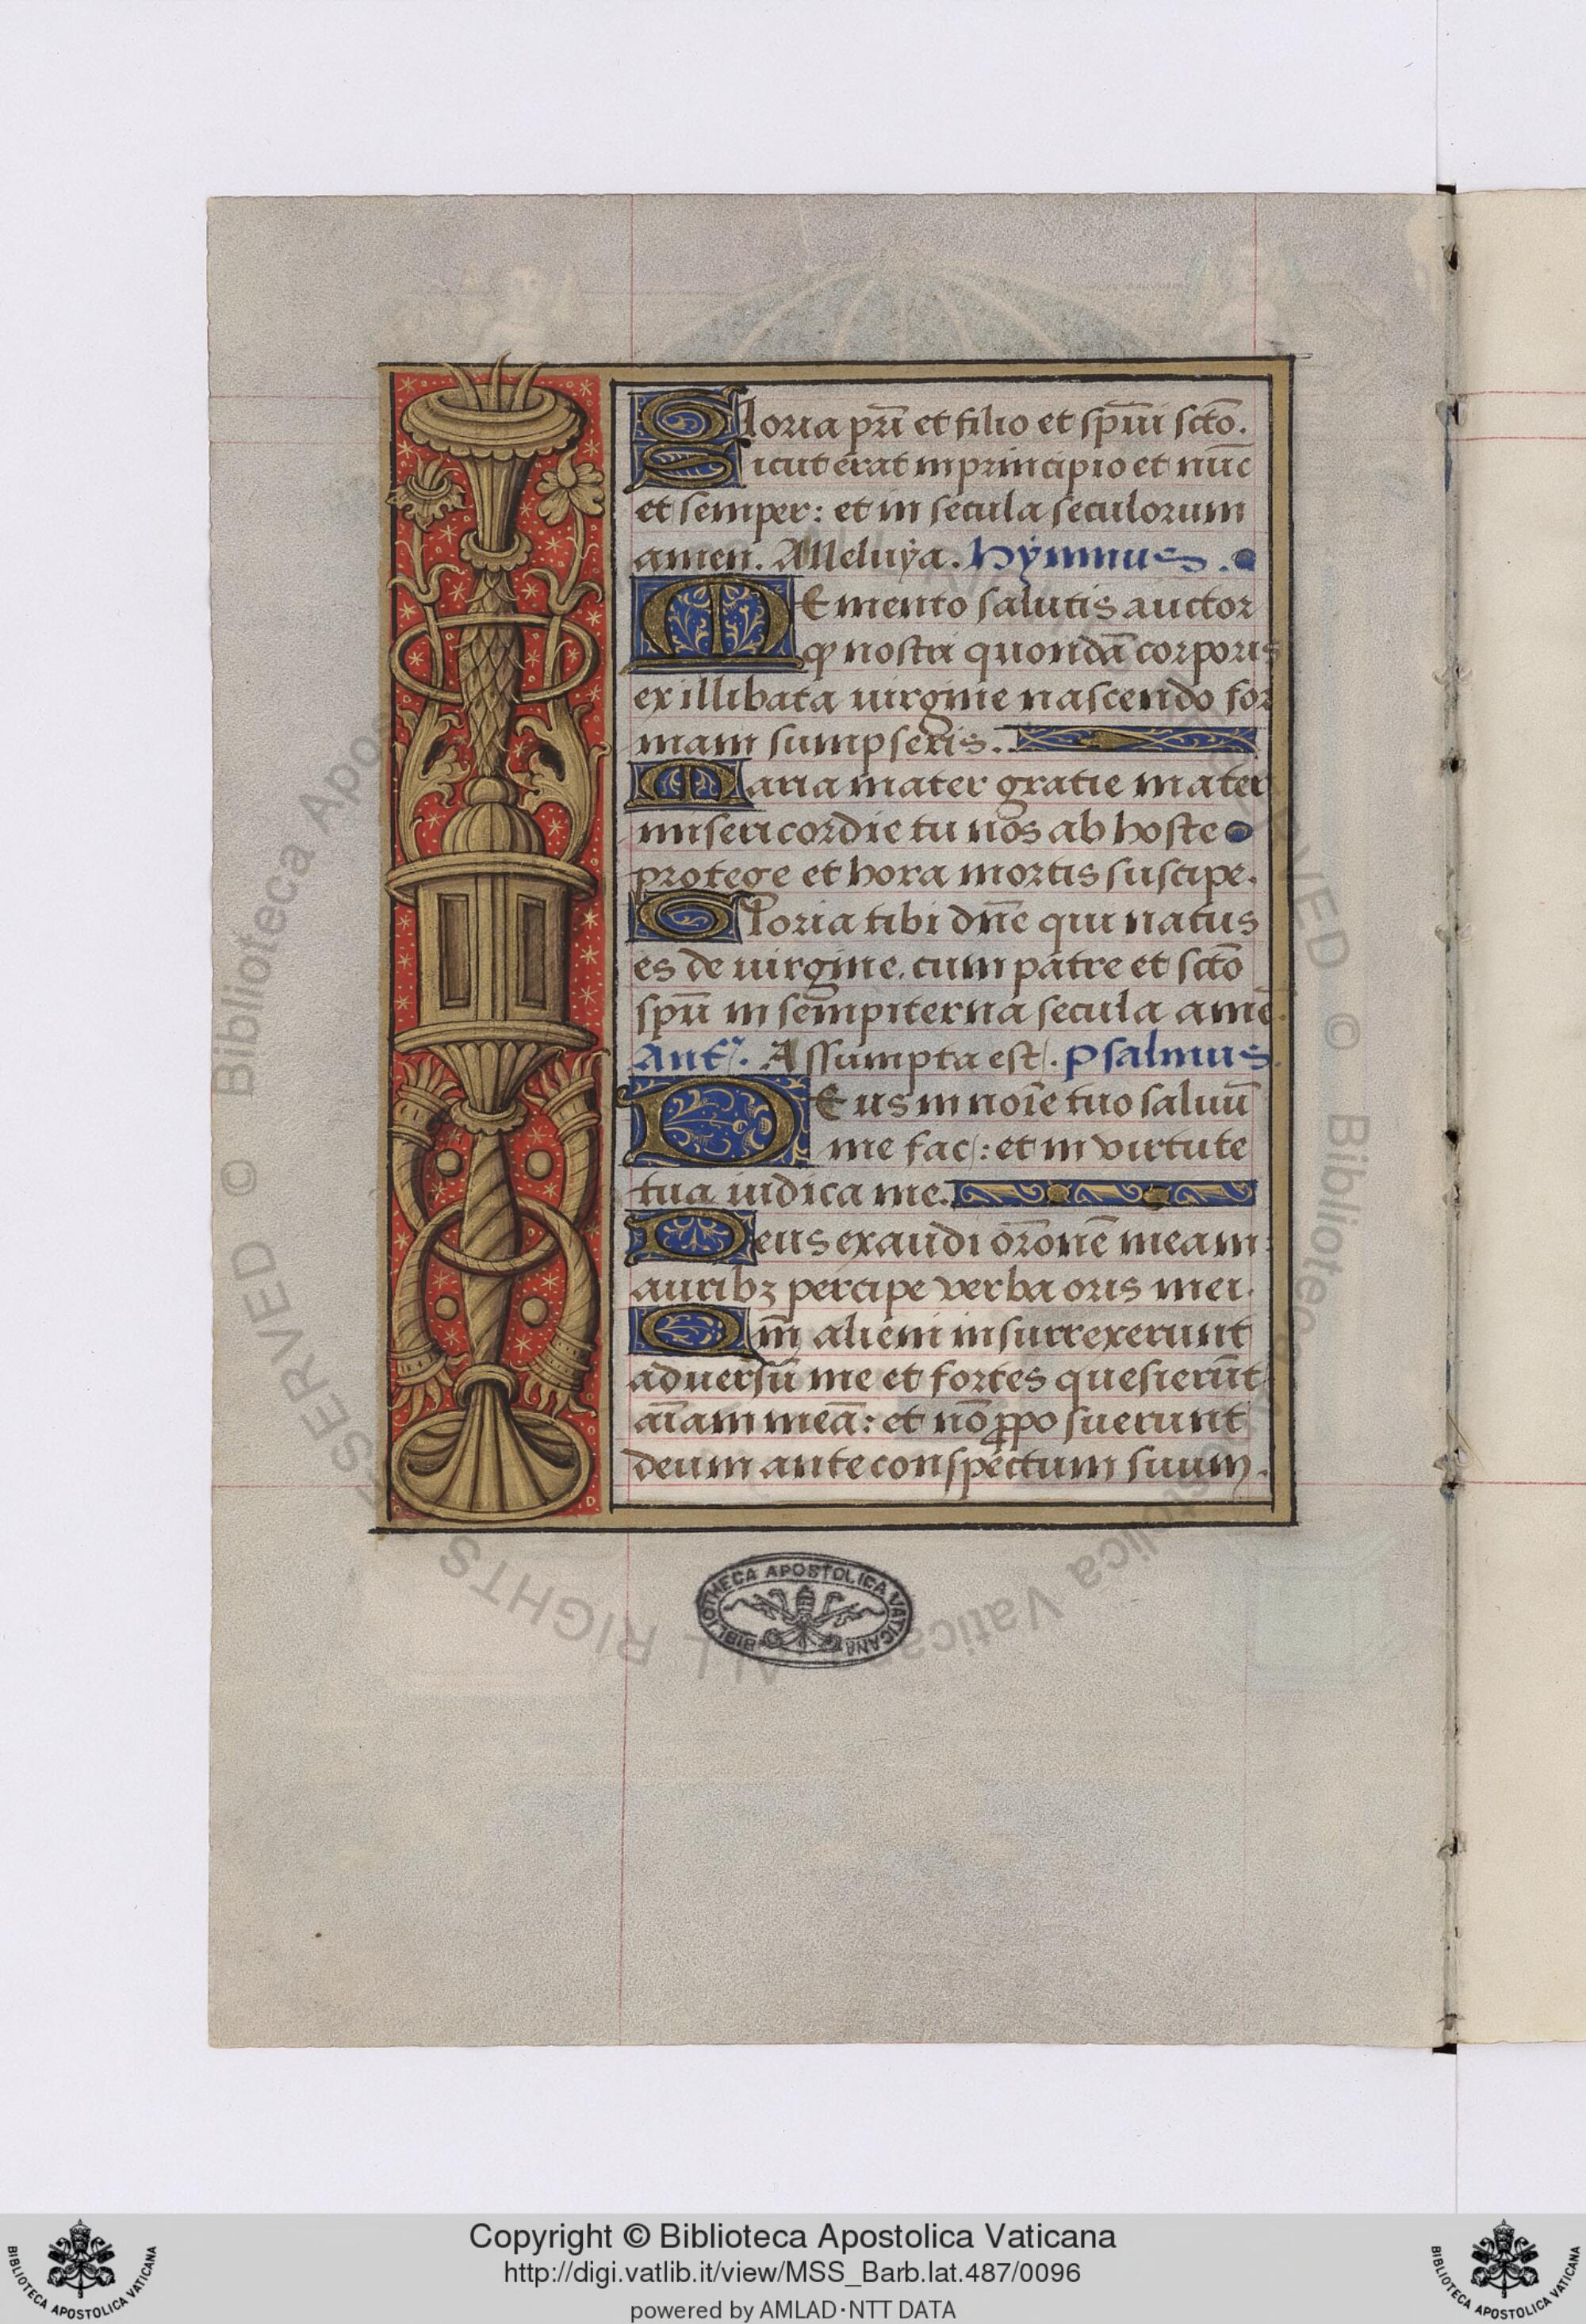 Gloria pr̄i et filio et sp̄ui sct̄o.
Sicut erat in principio et nūc
et semper: et in secula seculorum
amen. Alleluÿa. hÿmnus.
MEmento salutis auctor
ꝙ nostri quondā corporis
ex illibata uirgine nascendo for
mam sumpseris.
Maria mater gratie mater
misericordie tu nos ab hoste
protege et hora mortis suscipe.
Gloria tibi dn̄e qui natus
es de uirgine. cum patre et scto̅
spū in sempiterna secula amē.
Ant. Assumpta est. psalmus.
DEus in no̅ie tuo saluū
me fac: et in virtute
tua iudica me.
Deus exaudi or̄onē meam:
auribꝫ percipe verba oris mei.
Qm̄ alieni insurrexerunt
aduersū me et fortes quesierūt
aīam meā: et nō ꝓposuerunt
deum ante conspectum suum.
BIBLIOTHECA APOSTOLICA VATICANA
Copyright © Biblioteca Apostolica Vaticana
http://digi.vatlib.it/view/MSS_Barb.lat.487/0096
powered by AMLAD·NTT DATA
BIBLIOTECA APOSTOLICA VATICANA
BIBLIOTECA APOSTOLICA VATICANA